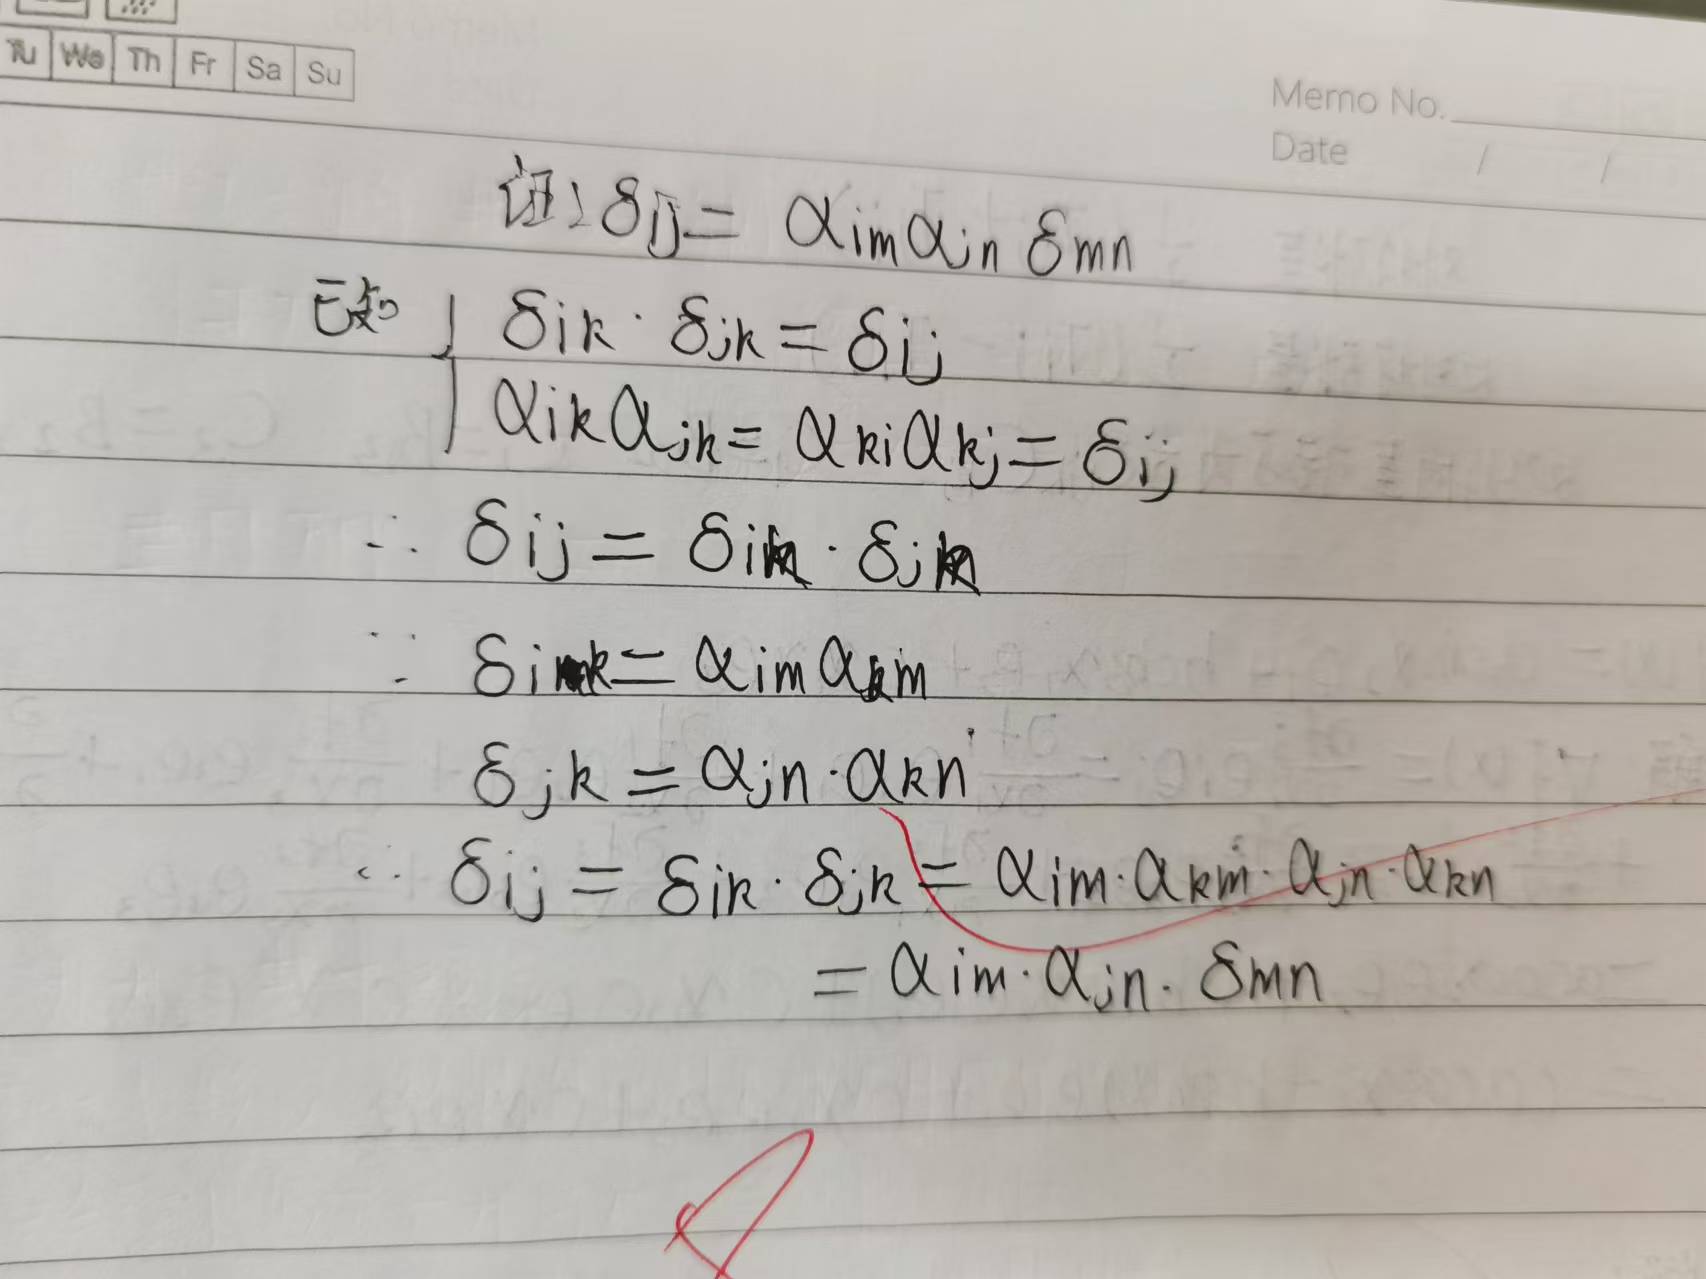 Tu We Th Fr Sa Su
Memo No.
Date / /
证: δij = αim αjn δmn
已知 { δik · δjk = δij
αik αjk = αki αkj = δij
∴ δij = δik · δjk
∵ δik = αim αkm
δjk = αjn · αkn
∴ δij = δik · δjk = αim · αkm · αjn · αkn
= αim · αjn · δmn